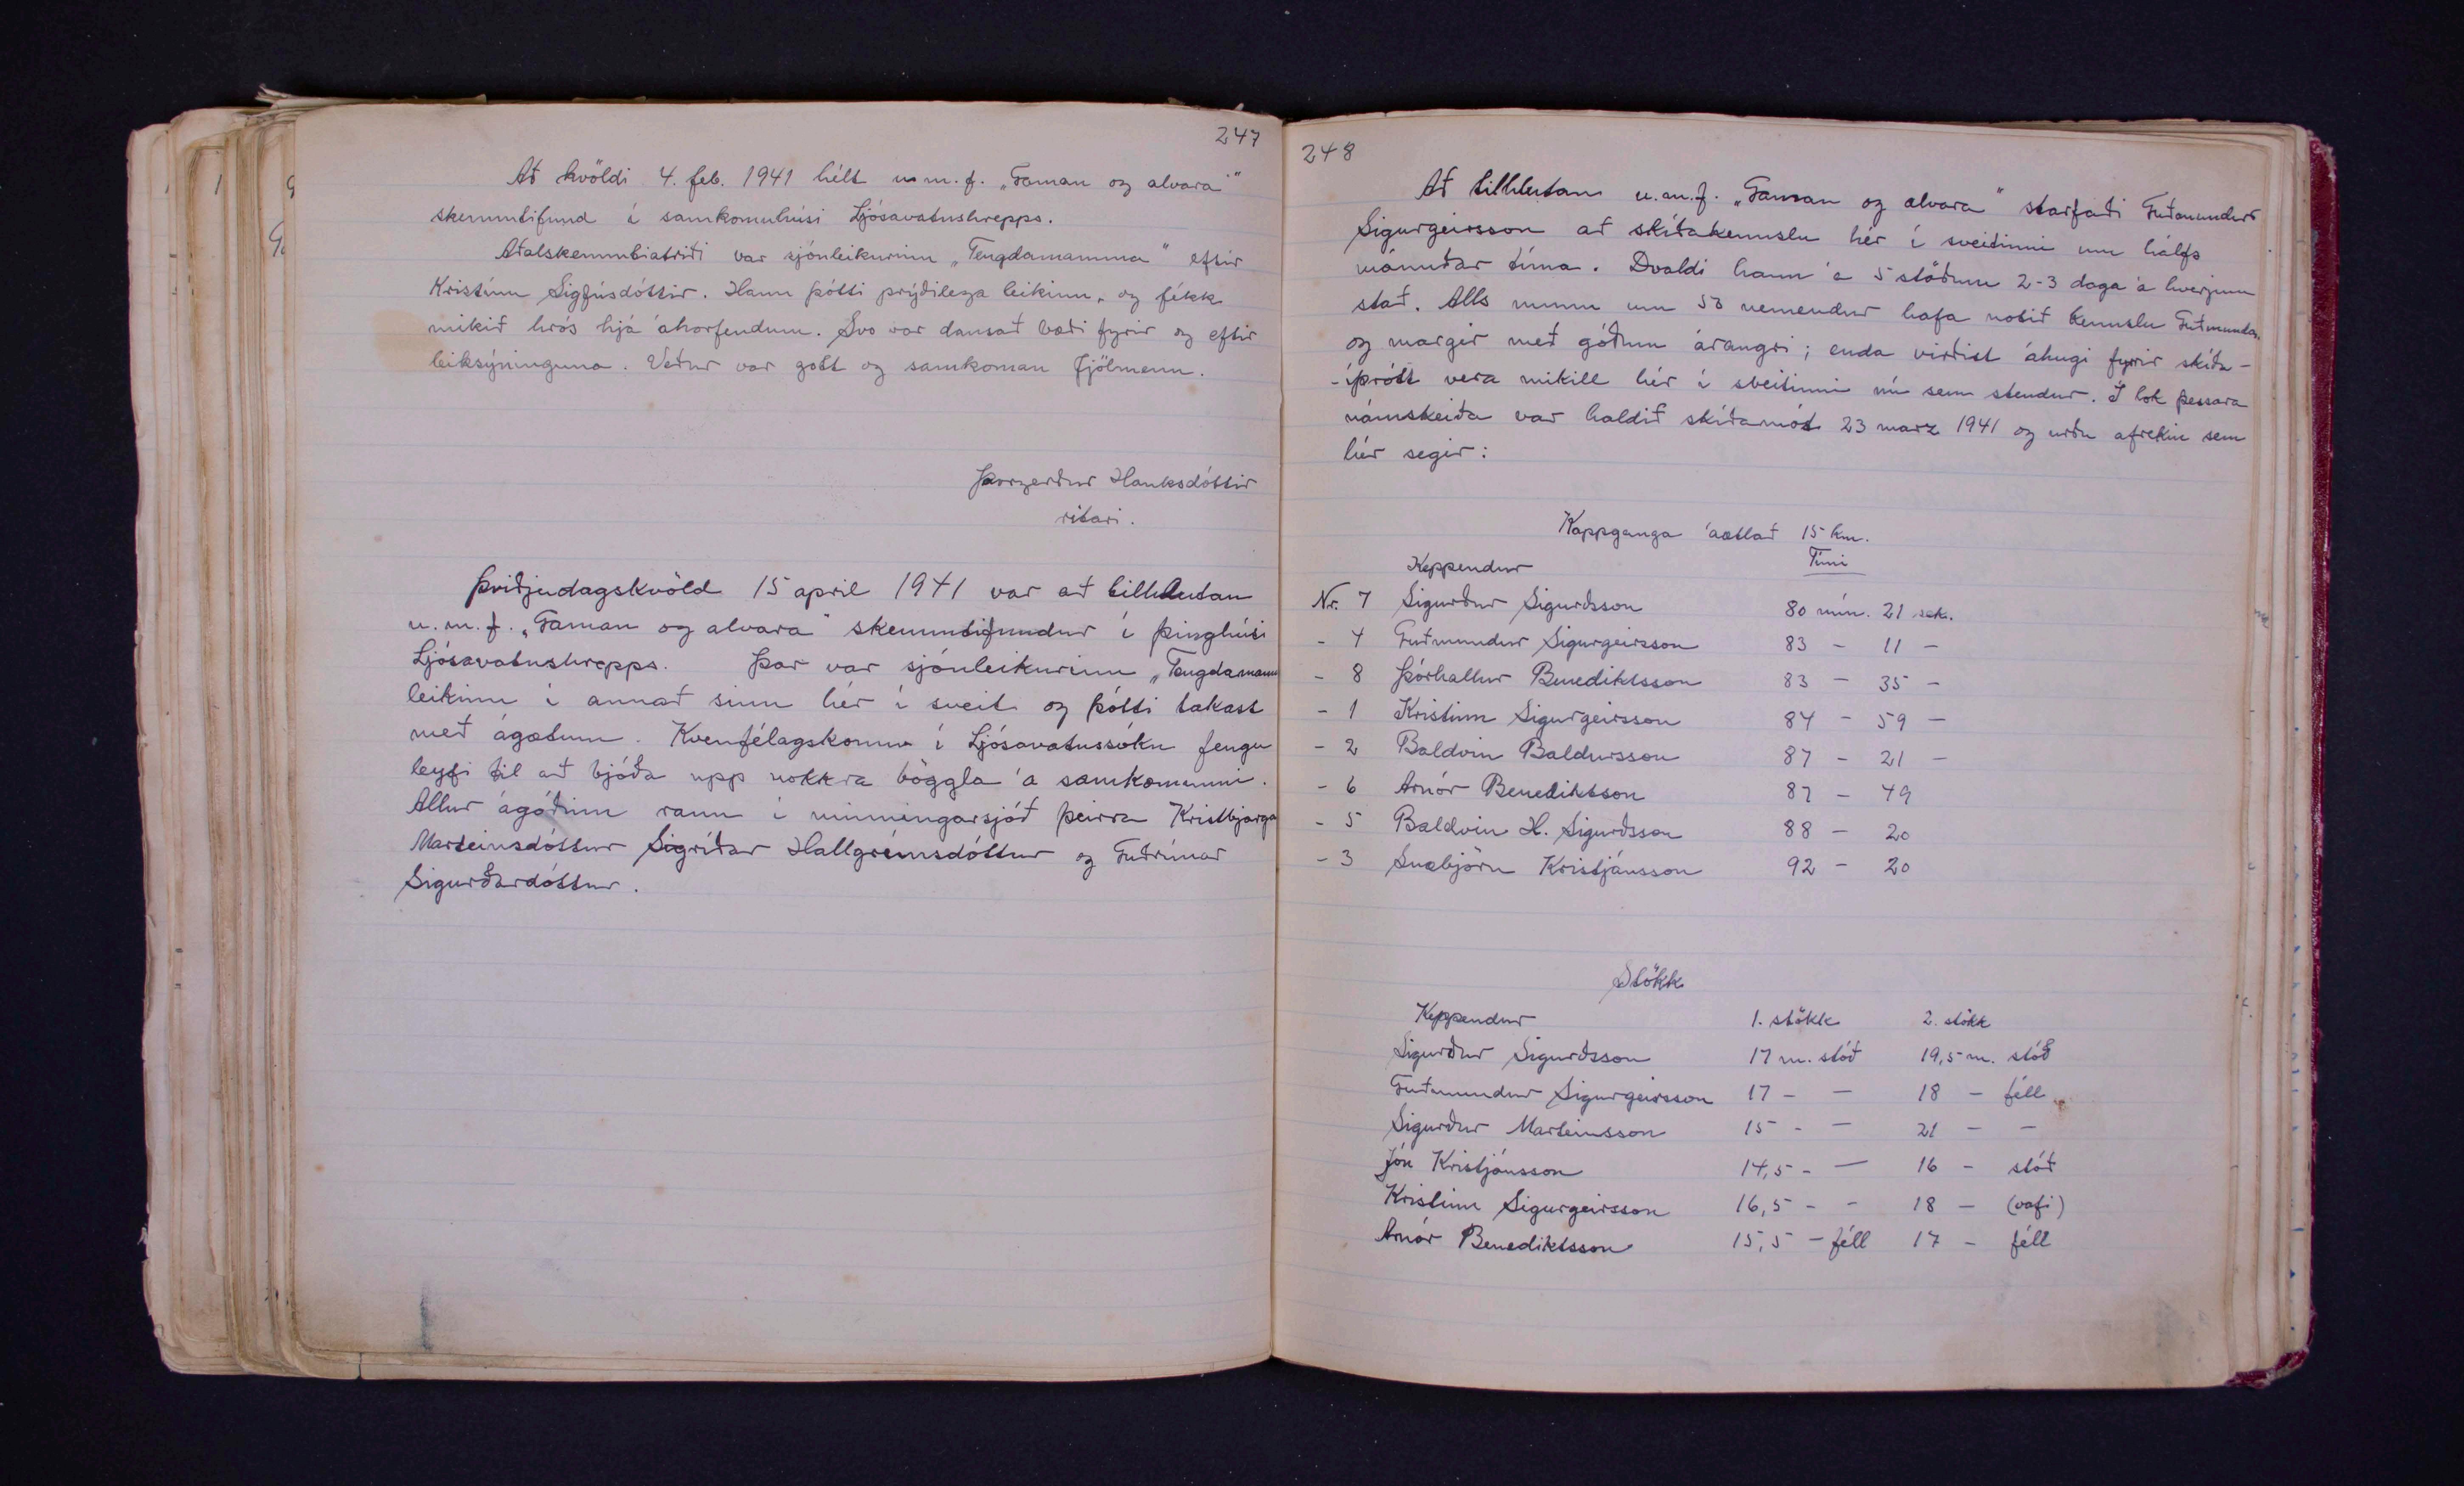 247
Að kvöldi 4. feb. 1941 hélt u.m.f. „Gaman og alvara"
skemmtifund í samkomuhúsi Ljósavatnshrepps.
Aðalskemmtiatriði var sjónleikurinn „Tengdamamma" eftir
Kristínu Sigfúsdóttir. Hann þótti prýðilega leikinn, og fékk
mikið hrós hjá áhorfendum. Svo var dansað bæði fyrir og eftir
leiksýninguna. Veður var gott og samkoman fjölmenn.
Þorgerður Hauksdóttir
ritari.
Þriðjudagskvöld 15 apríl 1941 var að tilhlutan
u.m.f. „Gaman og alvara" skemmtifundur í þinghúsi
Ljósavatnshrepps. Þar var sjónleikurinn „Tengdamamm
leikinn í annað sinn hér í sveit og þótti takast
með ágætum. Kvenfélagskonur í Ljósavatnssókn fengu
leyfi til að bjóða upp nokkra böggla á samkomunni.
Allur ágóðinn rann í minningarsjóð þeirra Kristbjarga
Marteinsdóttur Sigríðar Hallgrímsdóttur og Guðrúnar
Sigurðardóttur.
248
Að tilhlutan u.m.f. „Gaman og alvara" starfaði Guðmundur
Sigurgeirsson að skíðakennslu hér í sveitinni um hálfs
mánuðar tíma. Dvaldi hann á 5 stöðum 2-3 daga á hverjum
stað. Alls munu um 53 nemendur hafa notið kennslu Guðmundar
og margir með góðum árangri; enda virðist áhugi fyrir skíða-
-íþrótt vera mikill hér í sveitinni nú sem stendur. Í lok þessara
námskeiða var haldið skíðamót 23 marz 1941 og urðu afrekin sem
hér segir:
Kappganga áætlað 15 km.
Keppendur Tími
Nr. 7 Sigurður Sigurðsson 80 mín. 21 sek.
- 4 Guðmundur Sigurgeirsson 83 - 11 -
- 8 Þórhallur Benediktsson 83 - 35 -
- 1 Kristinn Sigurgeirsson 84 - 59 -
- 2 Baldvin Baldursson 87 - 21 -
- 6 Arnór Benediktsson 87 - 49
- 5 Baldvin H. Sigurðsson 88 - 20
- 3 Snæbjörn Kristjánsson 92 - 20
Stökk
Keppendur 1. stökk 2. stökk
Sigurður Sigurðsson 17 m. stóð 19,5 m. stóð
Guðmundur Sigurgeirsson 17 - - 18 - féll
Sigurður Marteinsson 15 - - 21 - -
Jón Kristjánsson 14,5 - - 16 - stóð
Kristinn Sigurgeirsson 16,5 - - 18 - (vafi)
Arnór Benediktsson 15,5 - féll 17 - féll